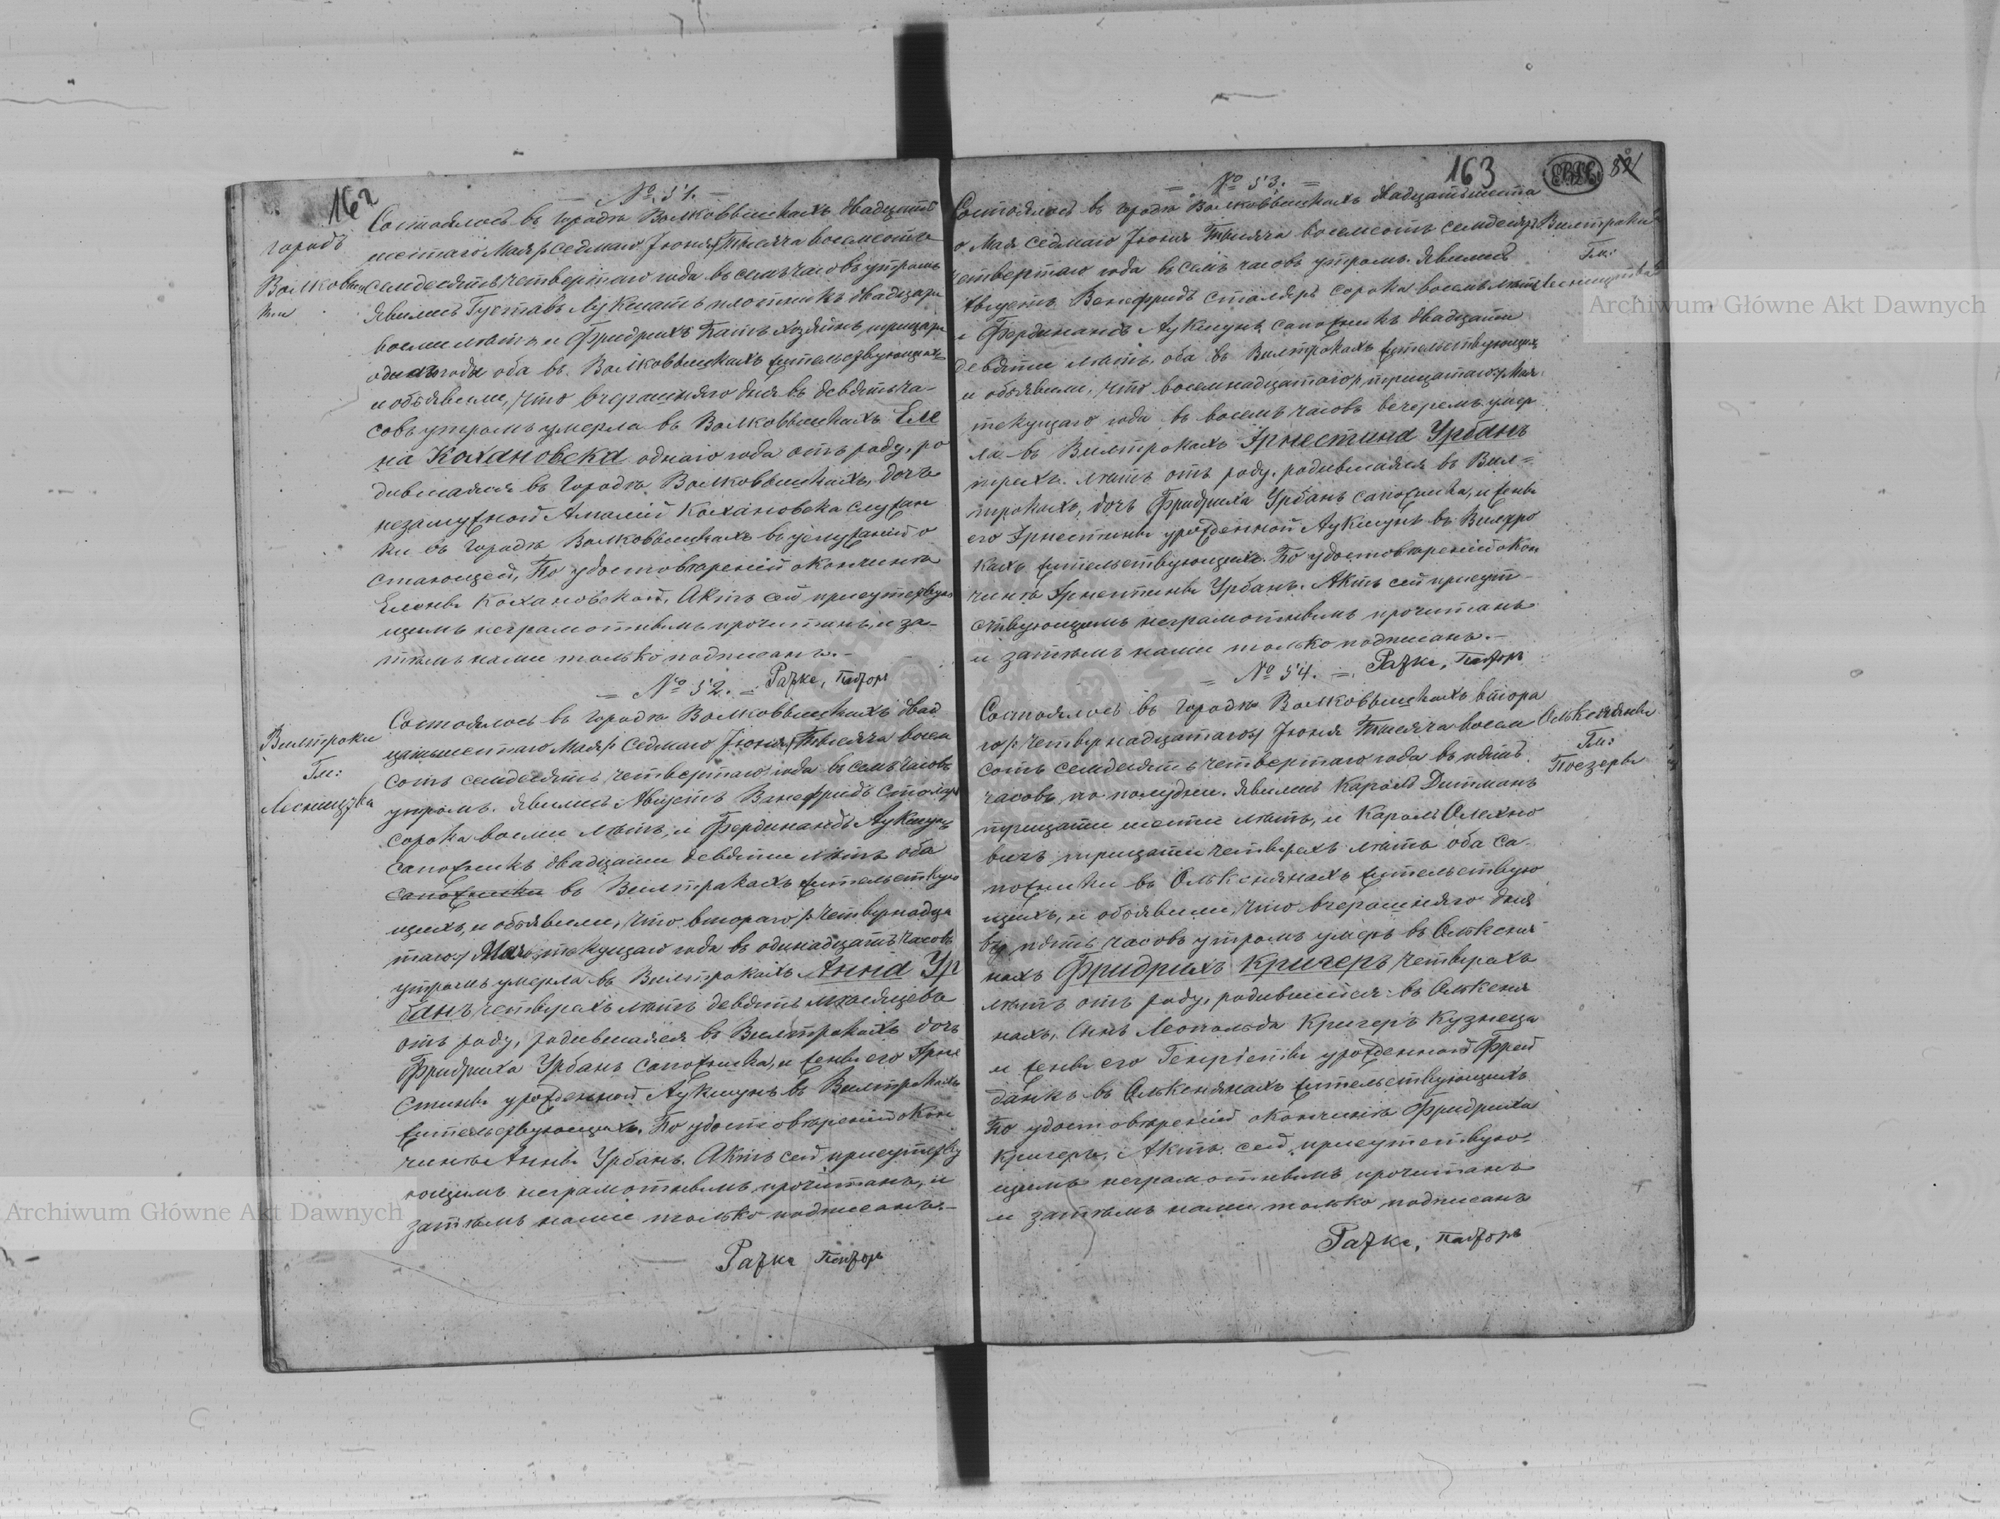 162
№ 51.
городъ
Волковыш
ки
Состоялось въ городѣ Волковышкахъ двадцать
шестаго Мая / седмаго Іюня / Тысяча восемсотъ
семдесятъ четвертаго года въ семъ часовъ утромъ
явились Густавъ Аукшатъ плотникъ двадцати
восми лѣтъ и Фридрихъ хозяинъ, тридцати
одного года оба въ Волковышкахъ жительствующихъ
и объявили, что вчерашняго дня въ девять ча-
совъ утромъ умерла въ Волковышкахъ Еле
на Кохановска одного года отъ роду, ро
дившаяся въ городѣ Волковышкахъ, дочь
незамужной Амаліи Кохановска служан
ки въ городѣ Волковышкахъ въ услуженіи о
стающей, По удостовѣреніи о кончинѣ
Елены Кохановской, Актъ сей присутствую
щимъ неграмотнымъ прочитанъ, и за-
тѣмъ нами только подписанъ.-
Пасторъ
№ 52.
Вилтроки
Гм:
Состоялось въ городѣ Волковышкахъ двад
цать шестаго Мая / седмаго Іюня / Тысяча восем
сотъ семдесятъ четвертаго года въ семъ часовъ
утромъ. явились Августъ Ванефридъ столяръ
сорока восми лѣтъ, и Фердинандъ Аукшунъ
сапожникъ двадцати девяти лѣтъ оба
сапожники въ Вилтрокахъ жительствую
щихъ, и объявили, что втораго / четырнадца
таго / Мая текущаго года въ одинадцать часовъ
утромъ умерла въ Вилтрокахъ Анна Ур
банъ четырехъ лѣтъ девять мѣсяцевъ
отъ роду, родившаяся въ Вилтрокахъ дочь
Фридриха Урбанъ сапожника, и жены его Эрне
стины урожденной Аукшунъ въ Вилтрокахъ
жительствующихъ. По удостовѣреніи о кон
чинѣ Анны Урбанъ. Актъ сей присутству
ющимъ неграмотнымъ прочитанъ, и
затѣмъ нами только подписанъ.-
Пасторъ
163
№ 53.
Вилтроки
Гм:
Состоялось въ городѣ Волковышкахъ двадцать шеста
го Мая седмаго Іюня Тысяча восемсотъ семдесятъ
четвертаго года въ семъ часовъ утромъ. явились
Августъ Ванефридъ столяръ сорока восемъ лѣтъ
и Фердинандъ Аукшунъ сапожникъ двадцати
девяти лѣтъ, оба въ Вилтрокахъ жительствующихъ
и объявили, что восемнадцатаго / тридцатаго / Мая
текущаго года въ восемъ часовъ вечеромъ умер
ла въ Вилтрокахъ Эрнестина Урбанъ
трехъ лѣтъ отъ роду, родившаяся въ Вил-
трокахъ, дочь Фридриха Урбанъ сапожника, и жены
его Эрнестины урожденной Аукшунъ въ Вилтро
кахъ жительствующихъ. По удостовѣреніи о кон
чинѣ Эрнестины Урбанъ. Актъ сей присут-
ствующимъ неграмотнымъ прочитанъ
и затѣмъ нами только подписанъ.-
Пасторъ
№ 54.
Гм:
Поезеры
Состоялось въ городѣ Волковышкахъ втора
го / четырнадцатаго / Іюня Тысяча восем
сотъ семдесятъ четвертаго года въ пять
часовъ по полудни. явились Каролъ Дитманъ
тридцати шести лѣтъ, и Каролъ Олехно
вичъ тридцати четырехъ лѣтъ оба са
пожники въ Олькснянахъ жительствую
щихъ, и объявили, что вчерашняго дня
въ пять часовъ утромъ умеръ въ Олькспя
нахъ Фридрихъ Кригеръ четырехъ
лѣтъ отъ роду, родившійся въ Олькспя
нахъ, сынъ Леопольда Кригеръ кузнеца
и жены его Генріетты урожденной Фрей
данкъ въ Олькснянахъ жительствующихъ
По удостовѣреніи о кончинѣ Фридриха
Кригеръ. Актъ сей присутствую-
щимъ неграмотнымъ прочитанъ
и затѣмъ нами только подписанъ
Пасторъ
Archiwum Główne Akt Dawnych
Archiwum Główne Akt Dawnych